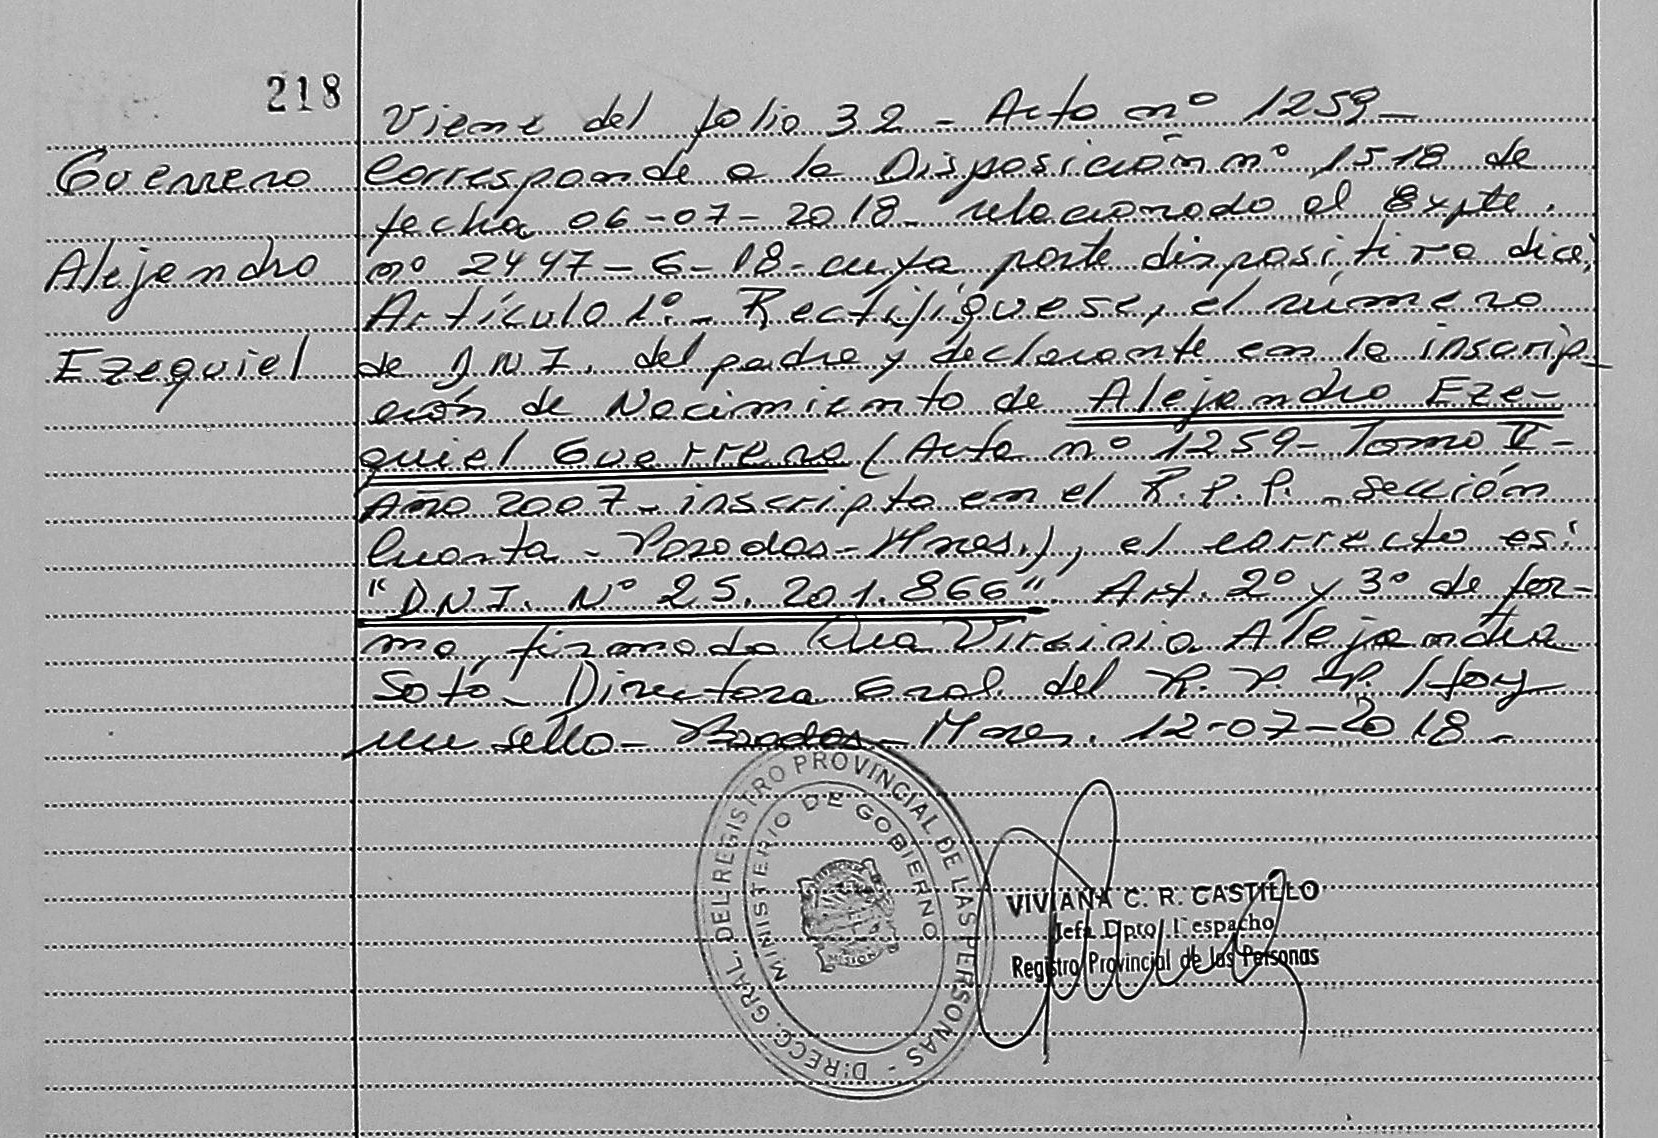 218
Viene del folio 32 - Acta nº 1259-
Guerrero
Corresponde a la Disposición nº 1518 de
fecha 06-07-2018- relacionado al Expte.
Alejandro
nº 2447-6-18- cuya parte dispositiva dice;
Artículo 1º- Rectifíquese, el número
Ezequiel
de D.N.I. del padre y declarante en la inscrip-
ción de Nacimiento de Alejandro Eze-
quiel Guerrero (Acta nº 1259- Tomo V-
Año 2007- inscripto en el R.P.P. - sección
Cuarta - Posadas - Mnes.), el correcto es:
"D.N.I. Nº 25.201.866" Art. 2º y 3º de for-
ma, firmado Virginia Alejandra
Soto- Directora Gral. del R.P.P. Hay
un sello- Posadas- Mnes. 12-07-2018-
DIRECC. GRAL. DEL REGISTRO PROVINCIAL DE LAS PERSONAS -
MINISTERIO DE GOBIERNO
VIVIANA C. R. CASTILLO
Jefa Dpto Despacho
Registro Provincial de las Personas